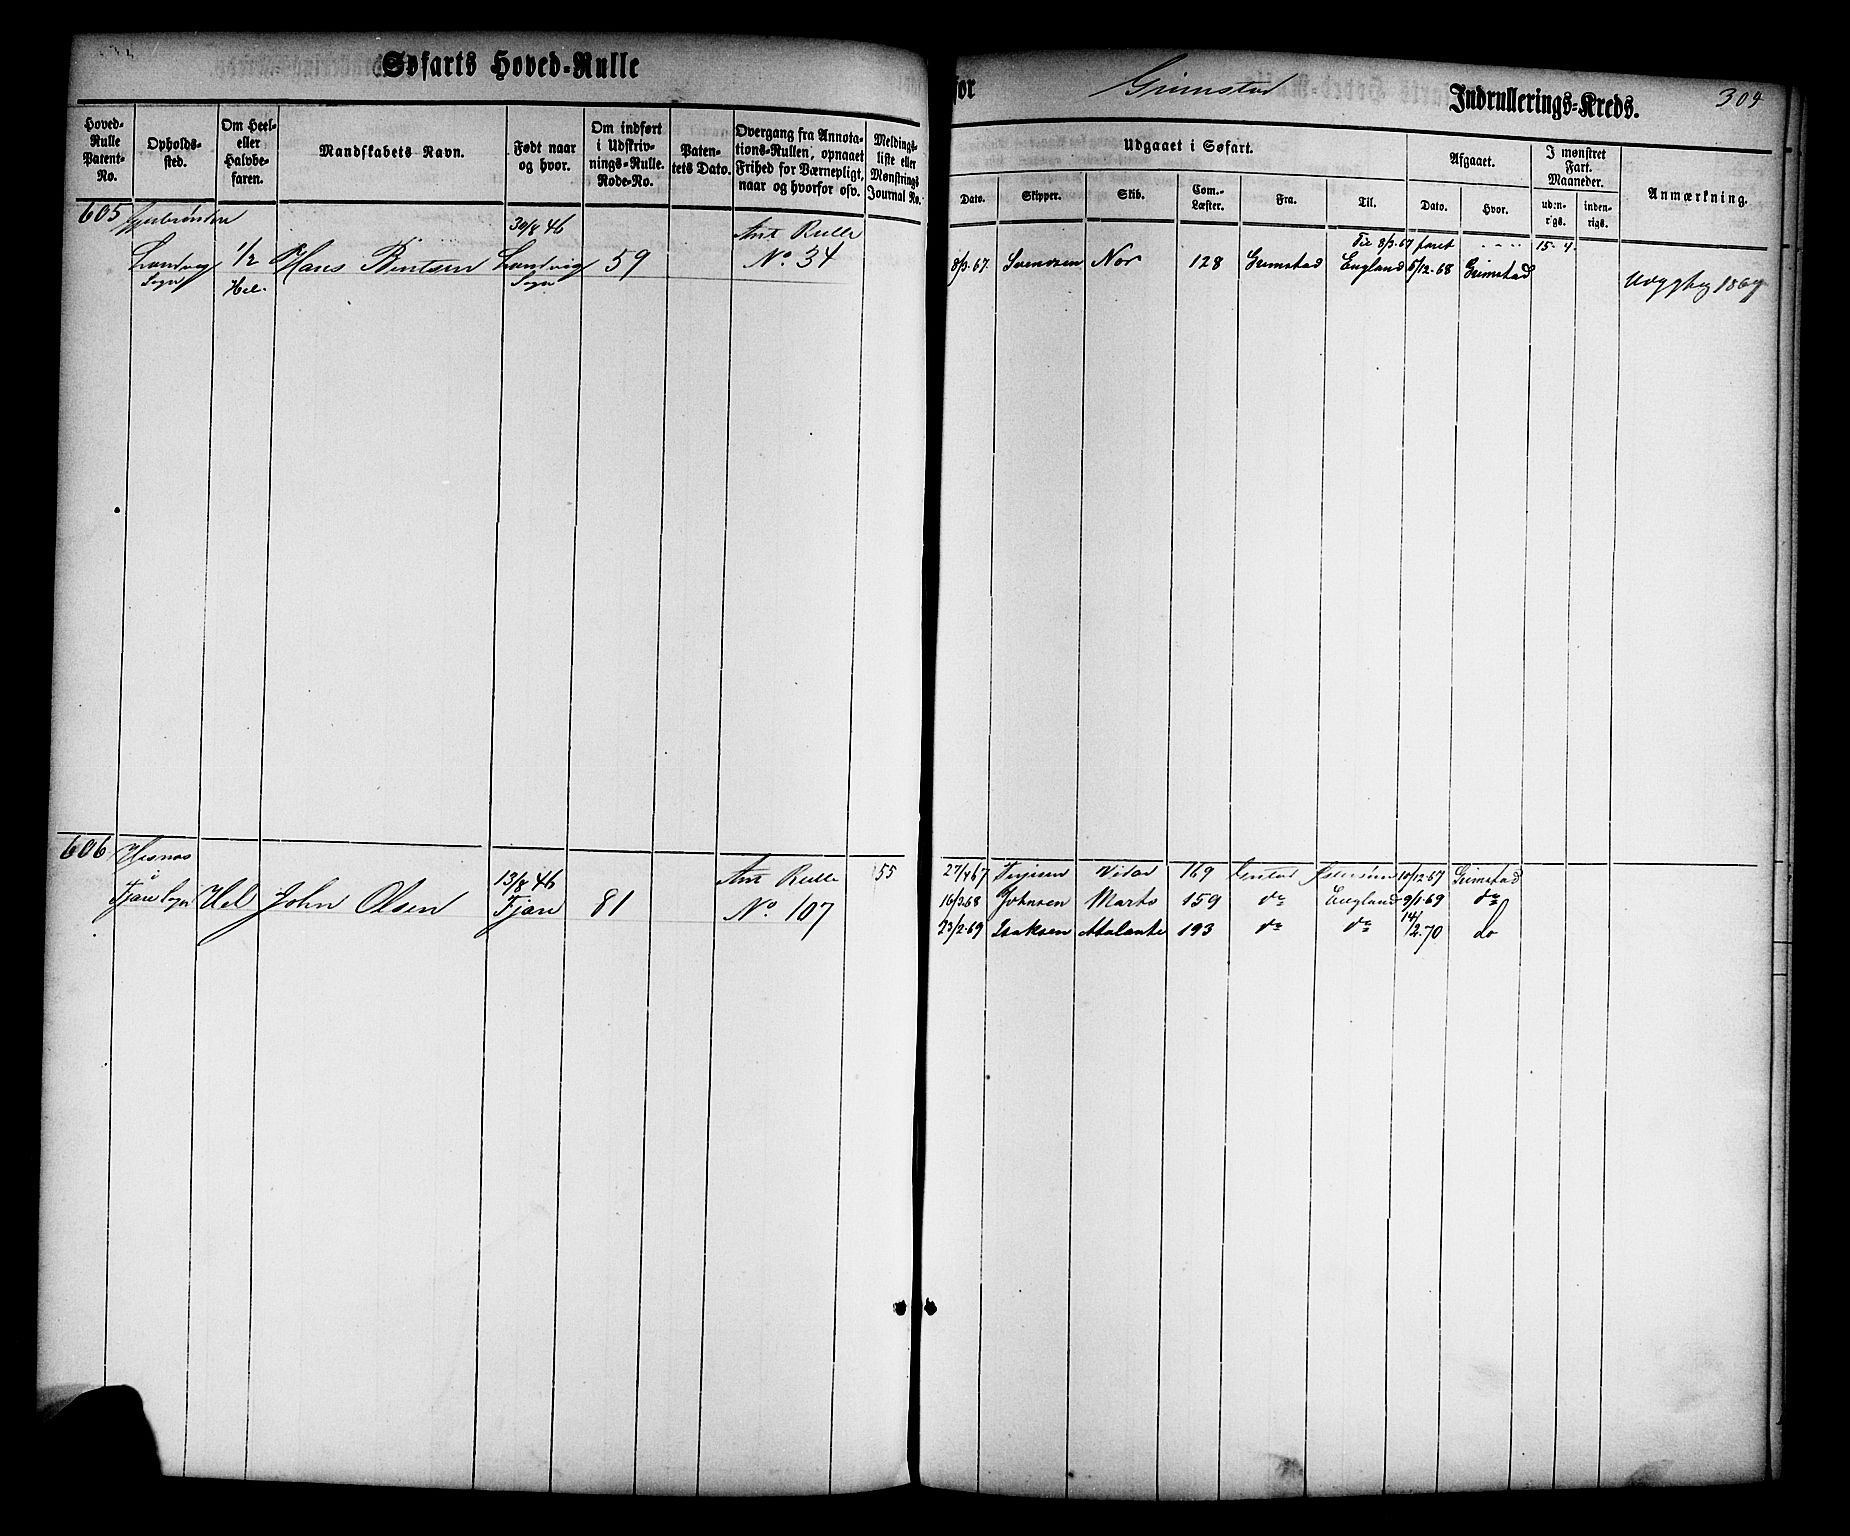 Søfarts Hoved-Rulle
for Grimstad Indrullerings-Kreds. 304
Hoved-Rulle Patent-No.
Opholds-sted.
Om Heel- eller Halvbefaren.
Mandskabets Navn.
Født naar og hvor.
Om indført i Udskrivnings-Rulle. Rode-No.
Patentets Dato.
Overgang fra Annotations-Rullen, opnaaet Frihed for Værnepligt, naar og hvorfor osv.
Meldingsliste eller Mønstrings Journal No.
Udgaaet i Søfart.
Afgaaet.
I mønstret Fart. Maaneder.
Anmærkning.
Dato. Skipper. Skib. Com.-Læster. Fra. Til. Dato. Hvor. uden-rigs. inden-rigs.
605
Landvig Sogn
1/2
Hel.
Hans Berntsen
30/8 46
Landvig Sogn
59
Ant Rulle
No. 34
Til 8/3.67 faret 15-4
8/3.67. Svendsen Nor 128 Grimstad England 5/12.68 Grimstad
606 Hesnæs
i
Fjære Sogn Hel John Olsen
13/8 46
Fjære
81
Ant Rulle
No. 107
55
27/4 67 Terjesen Vidar 169 10/12.67 Grimstad
16/3.68 Johnsen 159 do England 9/1.69 do
23/2.69 Isaksen Atalante 193 do do 14/2.70 do